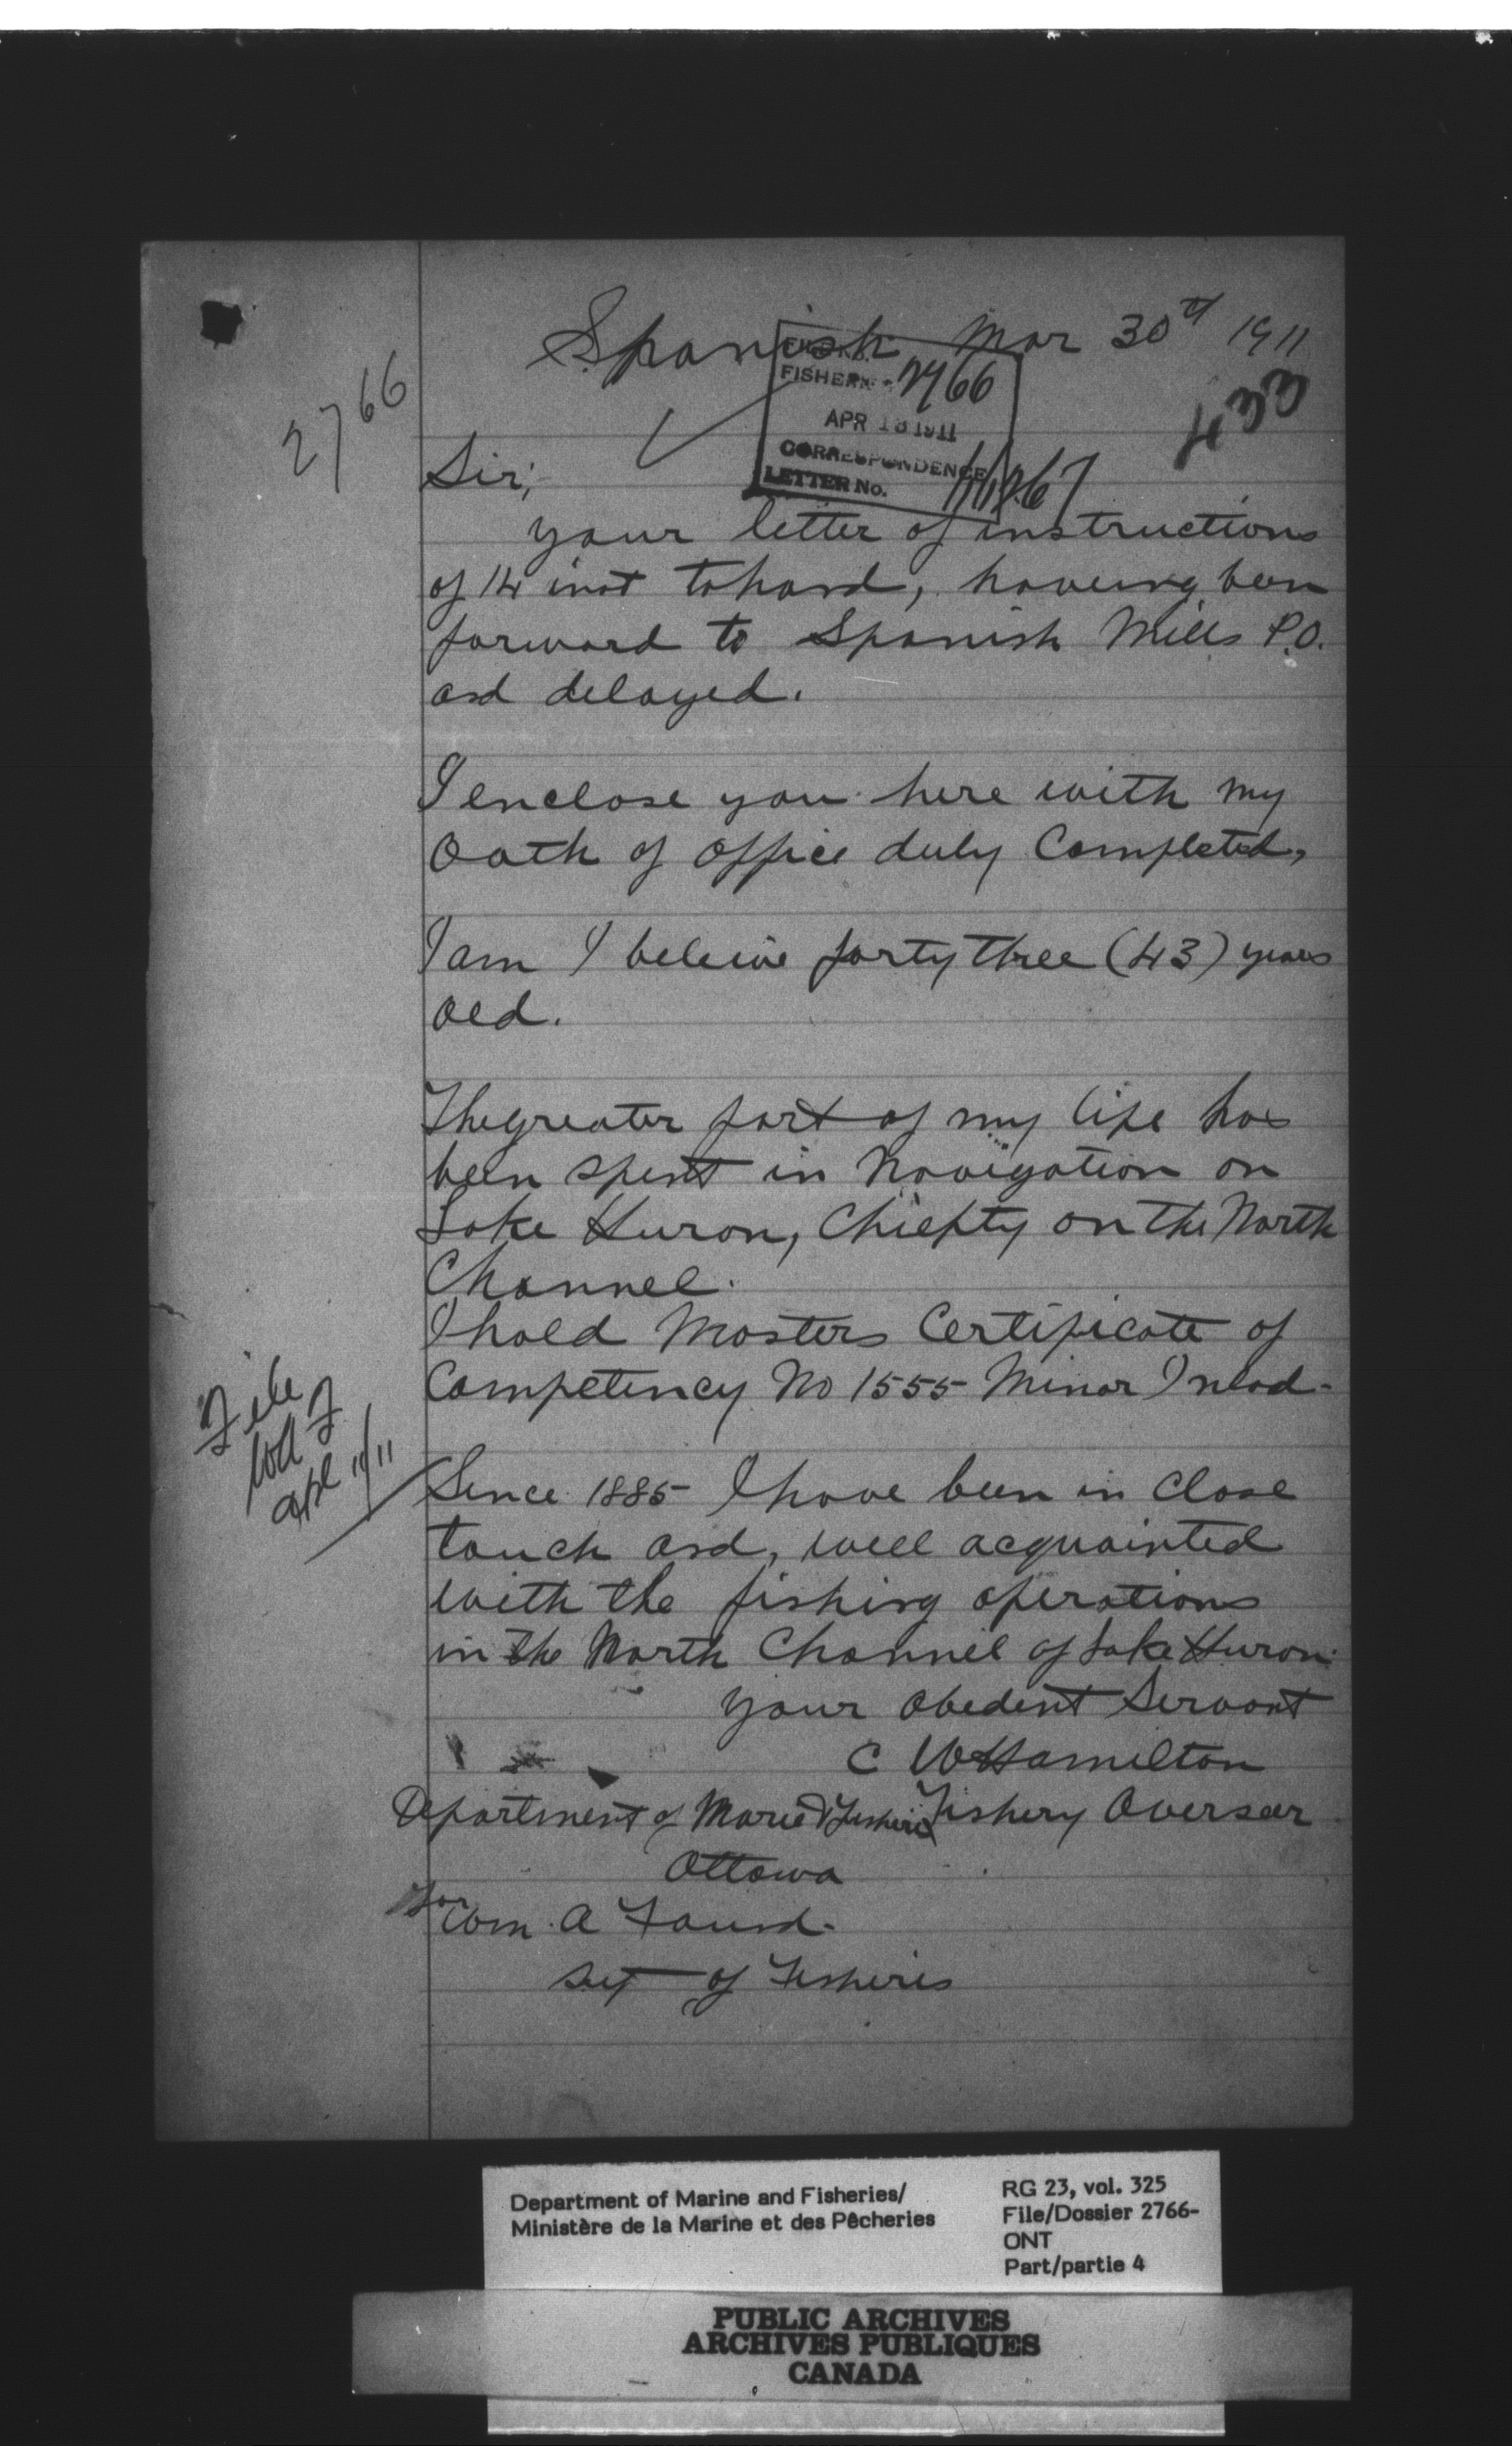 Spanish Mar 30th 1911
433
2766
FISHERIES 2766
APR 1911
CORRESPONDENCE
LETTER No.
Sir;
your letter of instructions
of 14 inst to hand, haveing been
forward to Spanish Mills P.O.
and delayed.
I enclose you here with my
Oath of Office duly Completed,
I am I beleive forty three (43) years
old.
The greater part of my life has
been spent in Navigation on
Lake Huron, Chiefty on the North
Channel.
I hold Masters Certificate of
Competency No 1555 Minor Inlad-
File
apl 11/11
Since 1885 I have been in Close
touch and, well acquainted
with the fishing operations
in the North Channel of Lake Huron
your Obedent Servant
C W Hamilton
Department of Marie & Fisheris Fishery Overseer
Ottawa
For Wm. A Found-
Supt of Fisheris
Department of Marine and Fisheries/
Ministère de la Marine et des Pêcheries
RG 23, vol. 325
File/Dossier 2766-
ONT
Part/partie 4
PUBLIC ARCHIVES
ARCHIVES PUBLIQUES
CANADA